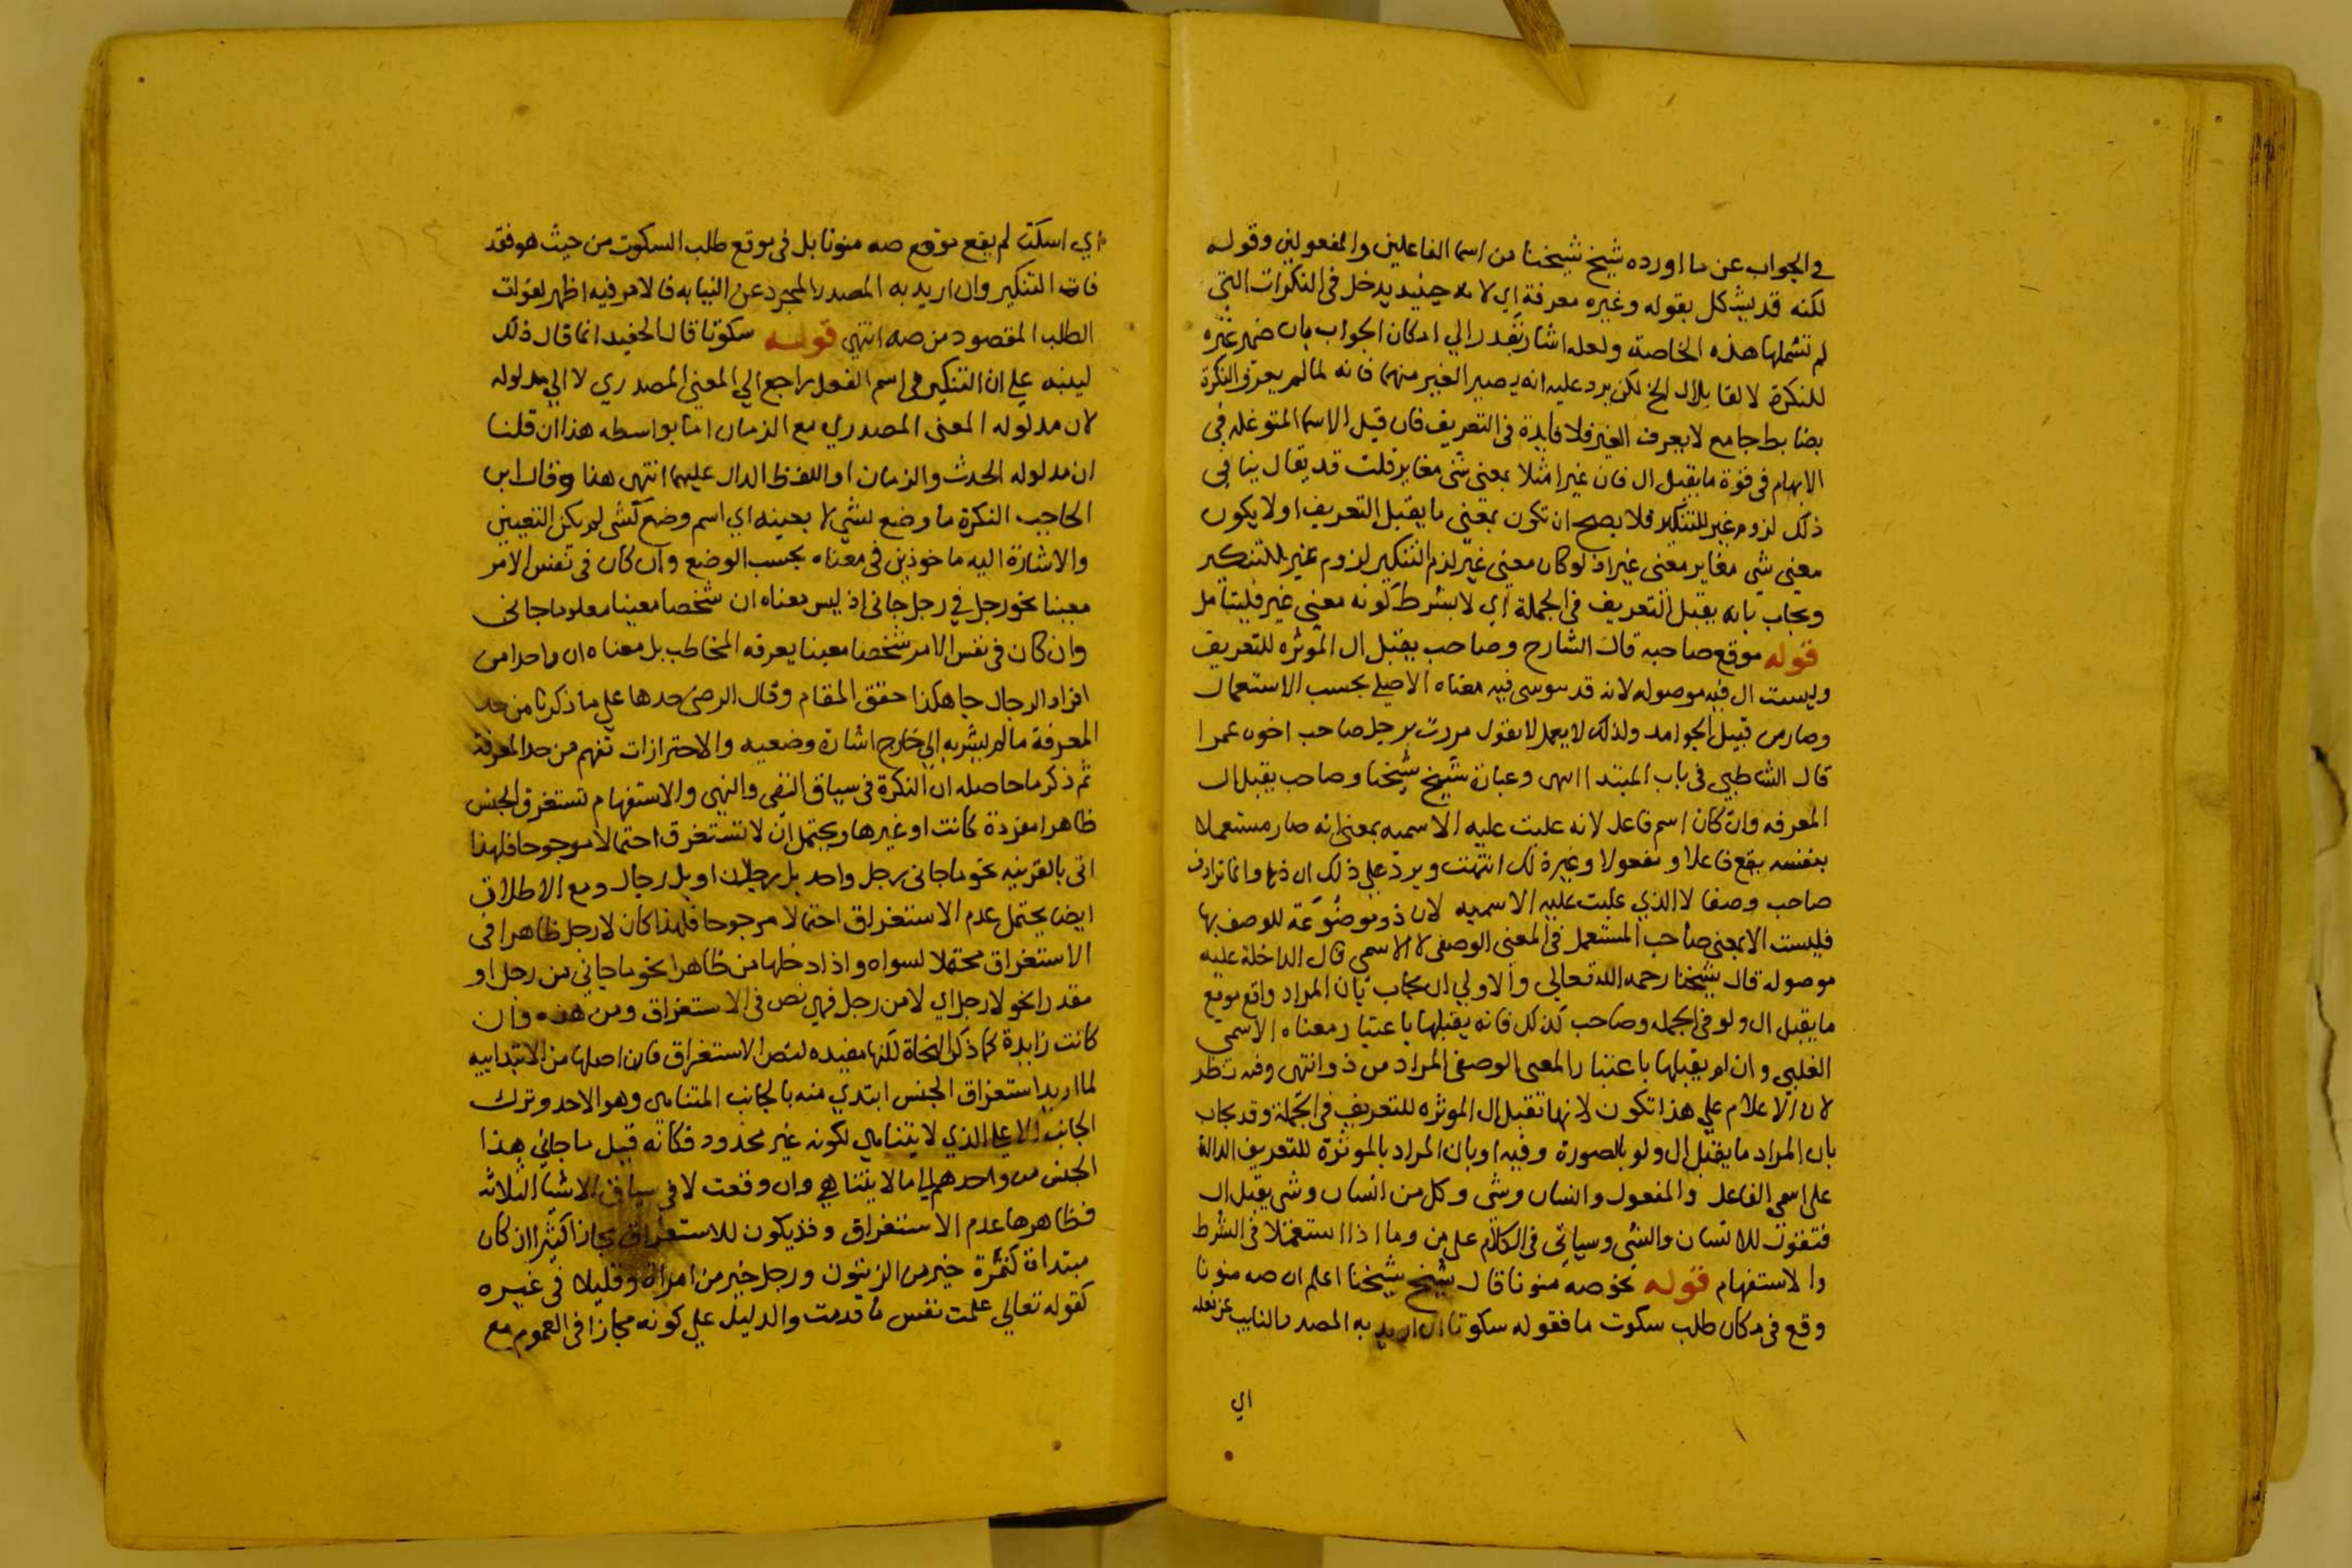 في الجواب عن ما اورده شيخ شيخنا من اسما الفاعلين والمفعولين وقوله
لكنه قد يشكل بقوله وغيره معرفة اي لانه حينيد يدخل في النكرات التي
لم تشملها هذه الخاصة ولعله اشار بقدر الي امكان الجواب بان ضمير غيره
للنكرة لا لقابلال الخ لكن يرد عليه انه يصير الغير منهما فانه لما لم يعرف النكرة
بضابط جامع لا يعرف الغير فلا فايدة في التعريف فان قيل الاسما المتوغله في
الابهام في قوة ما يقبل ال فان غيرا مثلا بمعنى شي مغاير قلت قد يقال ينافي
ذلك لزوم غير للتنكير فلا يصح ان تكون بمعني ما يقبل التعريف اولا يكون
معني شي مغاير معني غير اذ لو كان معني غير لزم التنكير لزوم غير للتنكير
ويجاب بانه يقبل التعريف في الجملة اي لا بشرط كونه معني غير فليتامل
قوله موقع صاحب قال الشارح وصاحب يقبل ال الموثره للتعريف
وليست ال فيه موصوله لانه قد سوسي فيه معناه الاصلي بحسب الاستعمال
وصار من قبيل الجوامد ولذلك لا يعمل لا نقول مررت برجل صاحب اخوه عمرا
قال الشاطبي في باب المبتدا انتهى وعبارة شيخ شيخنا وصاحب يقبل ال
المعرفه وان كان اسم فاعل لانه غلبت عليه الاسميه بمعنى انه صار مستعملا
بنفسه يقع فاعلا ومفعولا وغير ذلك انتهت ويرد علي ذلك ان ذا وانما ترادف
صاحب وصفا لا الذي غلبت عليه الاسميه لان ذو موضوعة للوصف بها
فليست الا بمعني صاحب المستعمل في المعني الوصفي لا الاسمي فال الداخلة عليه
موصوله قال شيخنا رحمه الله تعالي والاولي ان يجاب بان المراد واقع موقع
ما يقبل ال ولو في الجمله وصاحب كذلك فانه يقبلها باعتبار معناه الاسمي
الغلبي وان لم يقبلها باعتبار المعنى الوصفي المراد من ذو انتهى وفيه نظر
لان الاعلام علي هذا تكون لانها تقبل ال الموثره للتعريف في الجملة وقد يجاب
بان المراد ما يقبل ال ولو بالصورة وفيه او بان المراد بالموثرة للتعريف الدالة
على اسمي الفاعل والمفعول وانسان وشي وكل من انسان وشي يقبل ال
فتقول للانسان والشي وسياتي في الكلام على من وما اذا استعملا في الشرط
والاستفهام قوله نحو صه منونا قال شيخ شيخنا اعلم ان صه منونا
وقع في مكان طلب سكوت ما فقوله سكوتا ان اريد به المصدر النايب عن فعله
اي
اي اسكت لم يقع موقع صه منونا بل في موقع طلب السكوت من حيث هو فقد
فات التنكير وان اريد به المصدر المجرد عن النيابه فالامر فيه اظهر لفوات
الطلب المقصود من صه انتهي قوله سكوتا قال الحفيد انما قال ذلك
لينبه علي ان التنكير في اسم الفعل راجع الي المعني المصدري لا الي مدلوله
لان مدلوله المعنى المصدري مع الزمان اما بواسطه هذا ان قلنا
ان مدلوله الحدث والزمان او اللفظ الدال عليهما انتهى هنا وقال ابن
الحاجب النكرة ما وضع لشي لا بعينه اي اسم وضع لشي لم يكن التعيين
والاشارة اليه ماخوذين في معناه بحسب الوضع وان كان في نفس الامر
معينا نحو رجل في رجل جاني اذ ليس معناه ان شخصا معينا معلوما جاني
وان كان في نفس الامر شخصا معينا يعرفه المخاطب بل معناه ان واحدا من
افراد الرجال جا هكذا حقق المقام وقال الرضى حدها علي ما ذكرنا من حد
المعرفة ما لم يشر به الي خارج اشارة وضعيه والاحترازات تفهم من حد المعرفة
ثم ذكر ما حاصله ان النكرة في سياق النفي والنهي والاستفهام تستغرق الجنس
ظاهرا مفردة كانت او غيرها ويحتمل ان لا تستغرق احتمالا مرجوحا فلهذا
اتى بالقرينه نحو ما جاني رجل واحد بل رجلان او بل رجال ومع الاطلاق
ايضا يحتمل عدم الاستغراق احتمالا مرجوحا فلهذا كان لا رجل ظاهرا في
الاستغراق محتملا لسواه واذا دخلها من ظاهرا نحو ما جاني من رجل او
مقدرا نحو لا رجل اي لا من رجل فهي نص في الاستغراق ومن هذه وان
كانت زايدة كما ذكر النحاة لكنها مفيده لنص الاستغراق فان اصلها من الابتداييه
لما اريد استغراق الجنس ابتدي منه بالجانب المتناهى وهو الاحد وترك
الجانب الاعلي الذي لا يتناهي لكونه غير محدود فكانه قيل ما جاني هذا
الجنس من واحدهم الي ما لا يتناهي وان وقعت لا في سياق الاشيا الثلاثه
فظاهرها عدم الاستغراق وقد يكون للاستغراق مجازا كثيرا ان كان
مبتداة كتمرة خير من الزيتون ورجل خير من امراة وقليلا في غيره
كقوله تعالي علمت نفس ما قدمت والدليل علي كونه مجازا في العموم مع